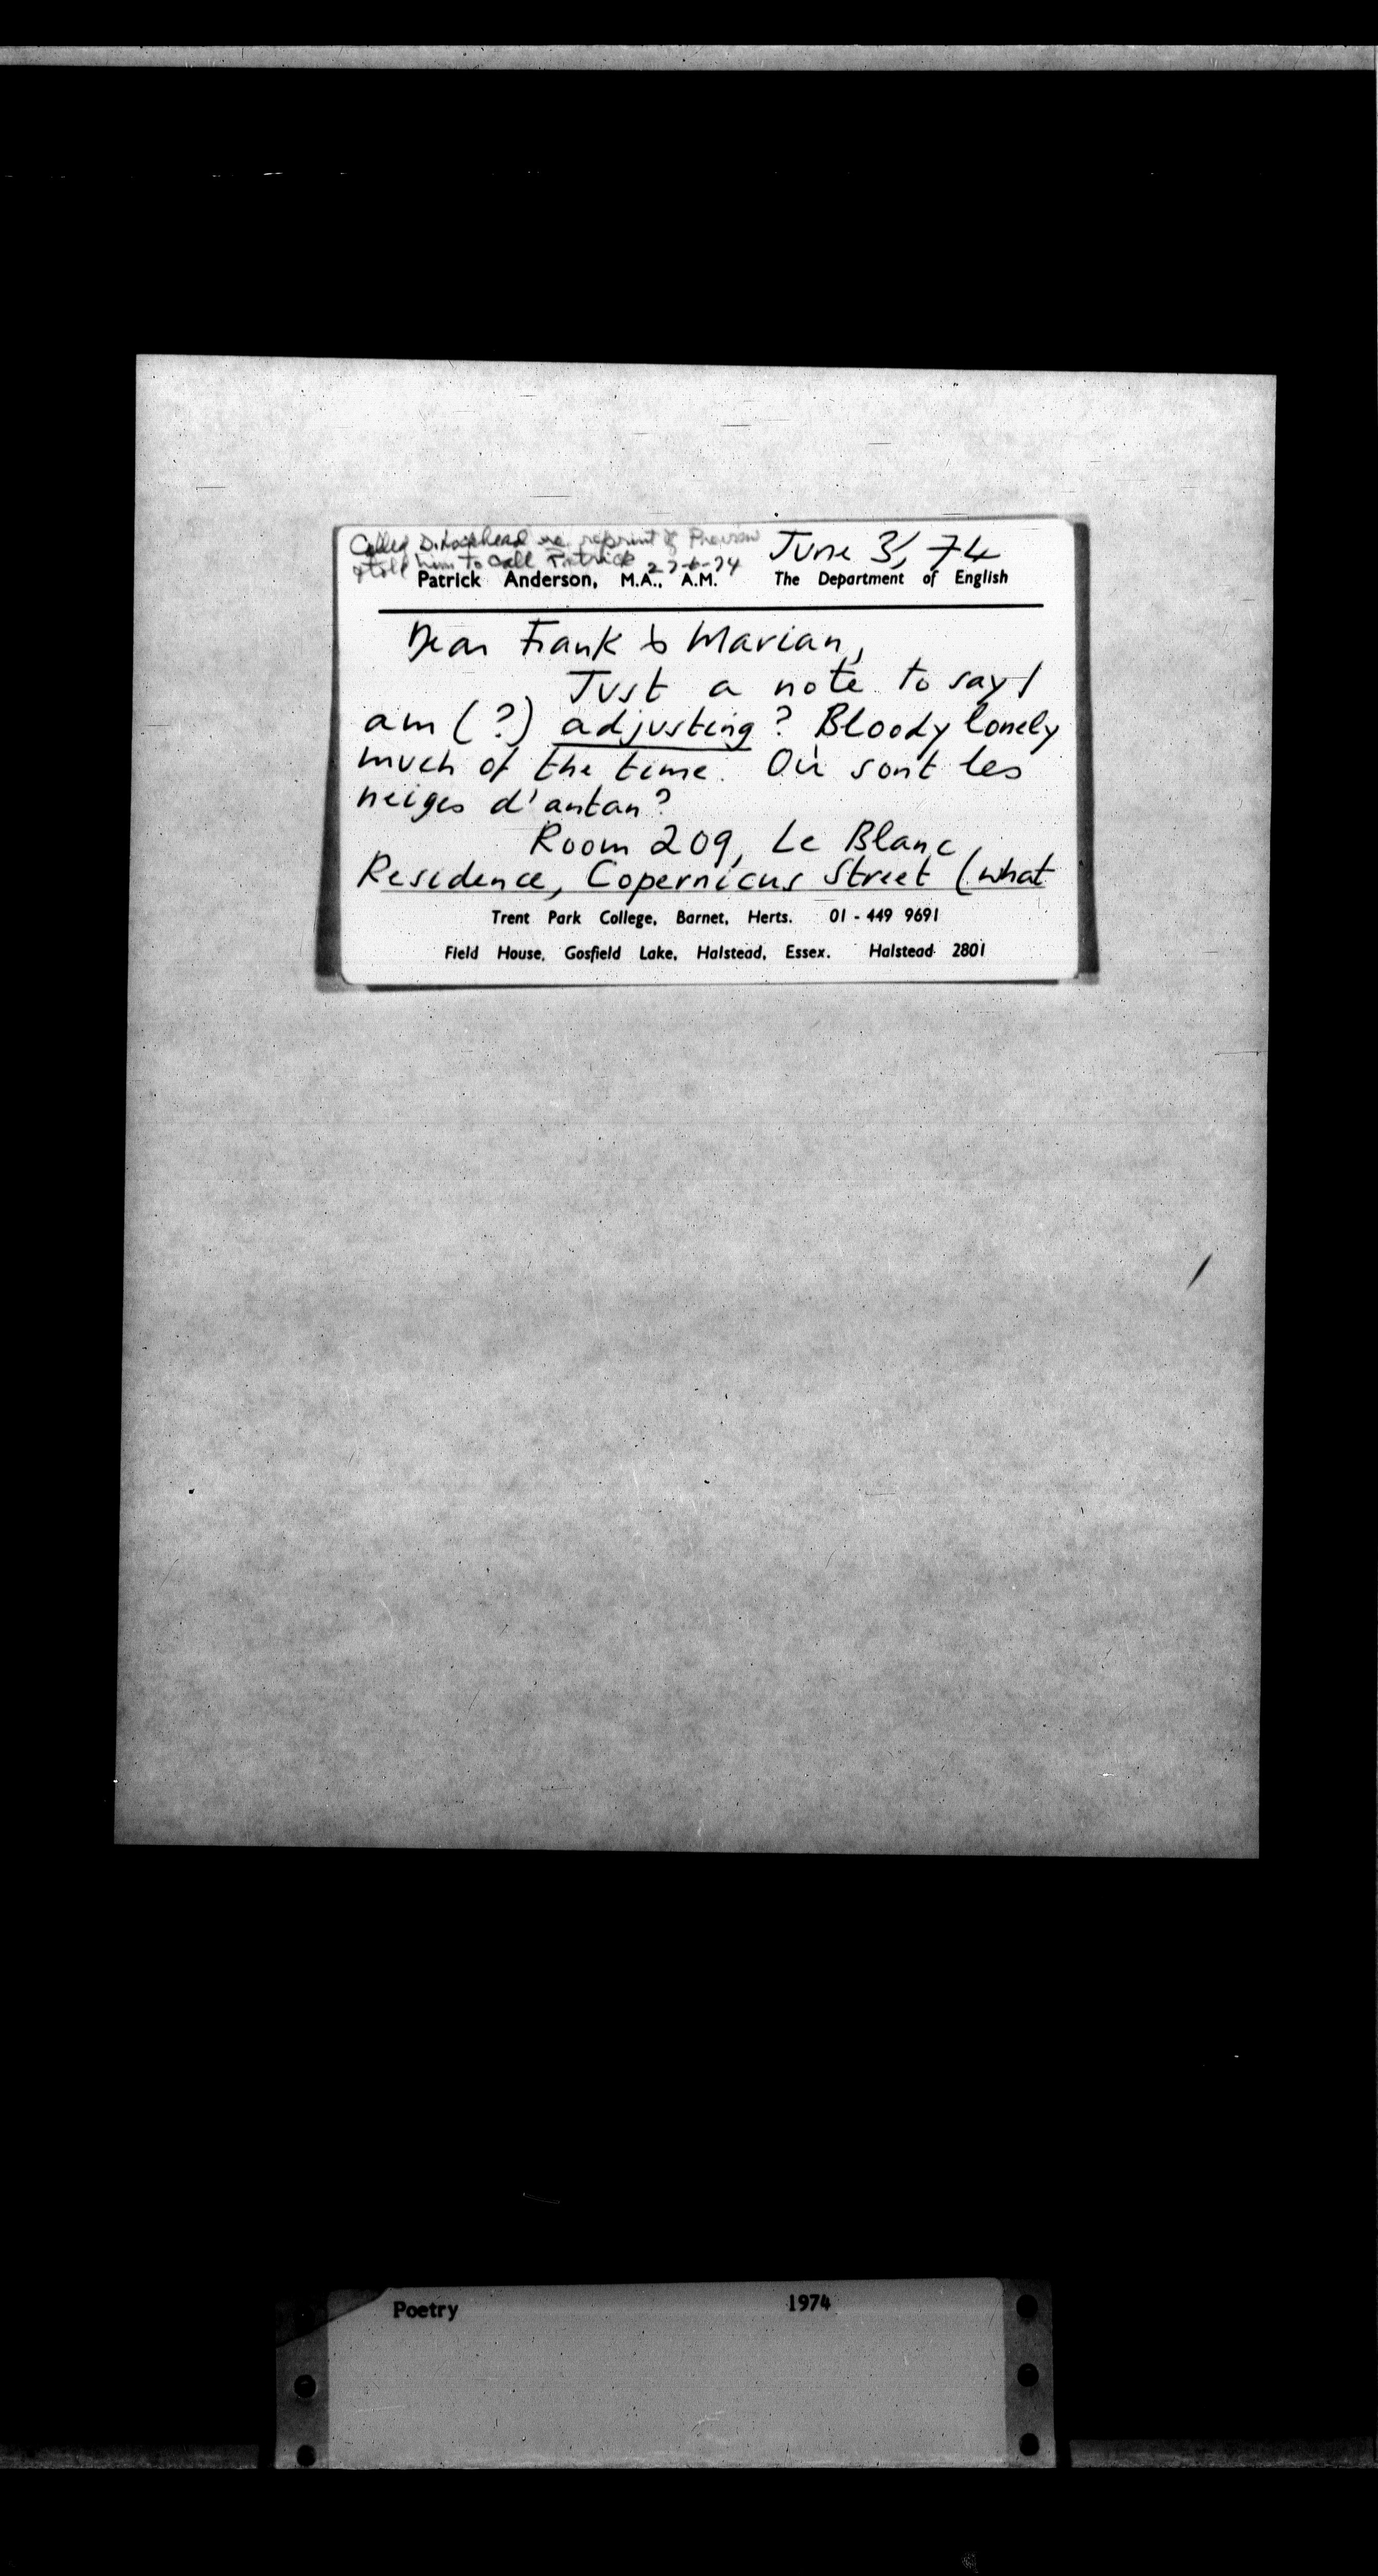 Called D. Lochhead re. reprint of Preview June 3/, 74
& told him to call Patrick 27-6-74
Patrick Anderson, M.A., A.M. The Department of English
Dear Frank & Marian,
Just a note to say I
am (?) adjusting? Bloody lonely
much of the time. Où sont les
neiges d'antan?
Room 209, Le Blanc
Residence, Copernicus Street (what
Trent Park College, Barnet, Herts. 01 - 449 9691
Field House, Gosfield Lake, Halstead, Essex. Halstead 2801
Poetry 1974